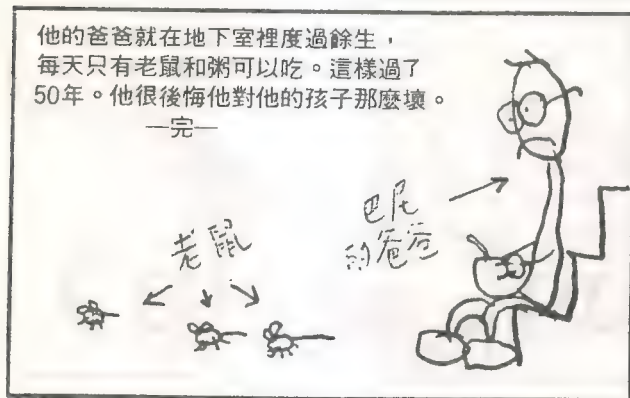 他的爸爸就在地下室裡度過餘生，
每天只有老鼠和粥可以吃。這樣過了
50年。他很後悔他對他的孩子那麼壞。
—完—
巴尼
的爸爸
老鼠